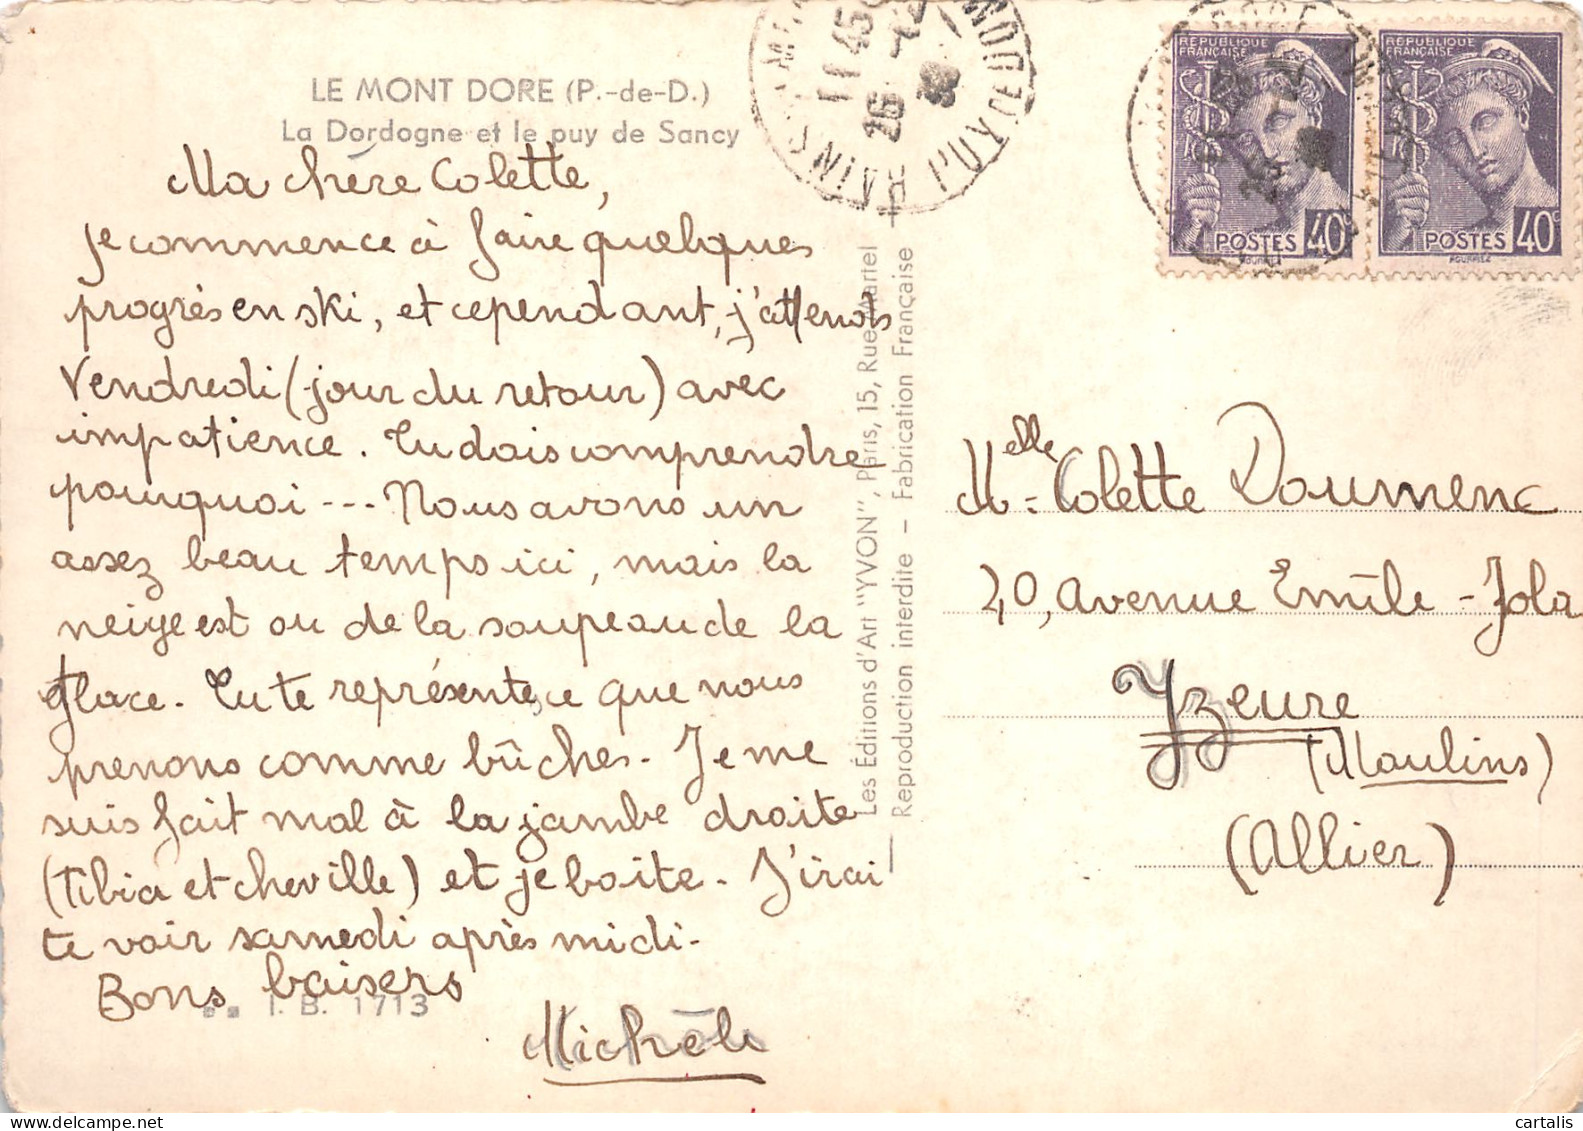 LE MONT DORE (P.-de-D.)
La Dordogne et le puy de Sancy
Ma chère Colette,
je commence à faire quelques
progrès en ski, et cependant, j'attends
Vendredi (jour du retour) avec
impatience. Tu dois comprendre
pourquoi --- Nous avons un
assez beau temps ici, mais la
neige est ou de la soupe ou de la
glace. Tu te représente, ce que nous
prenons comme bûches. Je me
suis fait mal à la jambe droite
(Tibia et cheville) et je boite. J'irai
te voir samedi après midi.
Bons baisers
I. B. 1713
Michèle
Les Éditions d'Art "YVON", Paris, 15, Rue Martel
Reproduction interdite – Fabrication Française
11 45
26
PUY DE DOME
REPUBLIQUE
FRANÇAISE
POSTES 40c
REPUBLIQUE
FRANÇAISE
POSTES 40c
Melle Colette Doumenc
20, avenue Emile-Zola
Yzeure
(Moulins)
(Allier)
cartalis